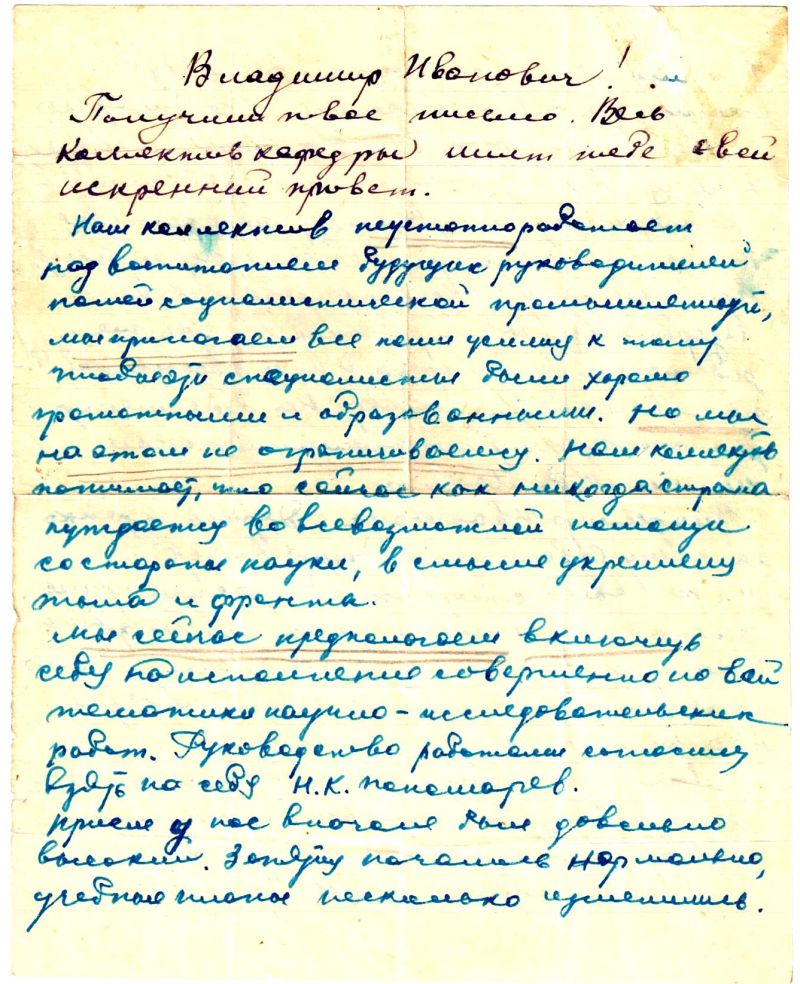 Владимир Иванович!
Получили твое письмо. Весь
коллектив кафедры шлет тебе свой
искренний привет.
Наш коллектив неустанно работает
над воспитанием будущих руководителей
нашей социалистической промышленности,
мы прилагаем все наши усилия к тому
чтобы эти специалисты были хорошо
грамотными и образованными. Но мы
на этом не ограничиваемся. Наш коллектив
понимает, что сейчас как никогда страна
нуждается во всевозможной помощи
со стороны науки, в смысле укрепления
тыла и фронта.
Мы сейчас предполагаем включить
себя на исполнение совершенно новой
тематики научно-исследовательских
работ. Руководство работами согласился
взять на себя Н.К. Пономарев.
Прием у нас вначале был довольно
высокий. Занятия начались нормально,
учебные планы несколько изменились.